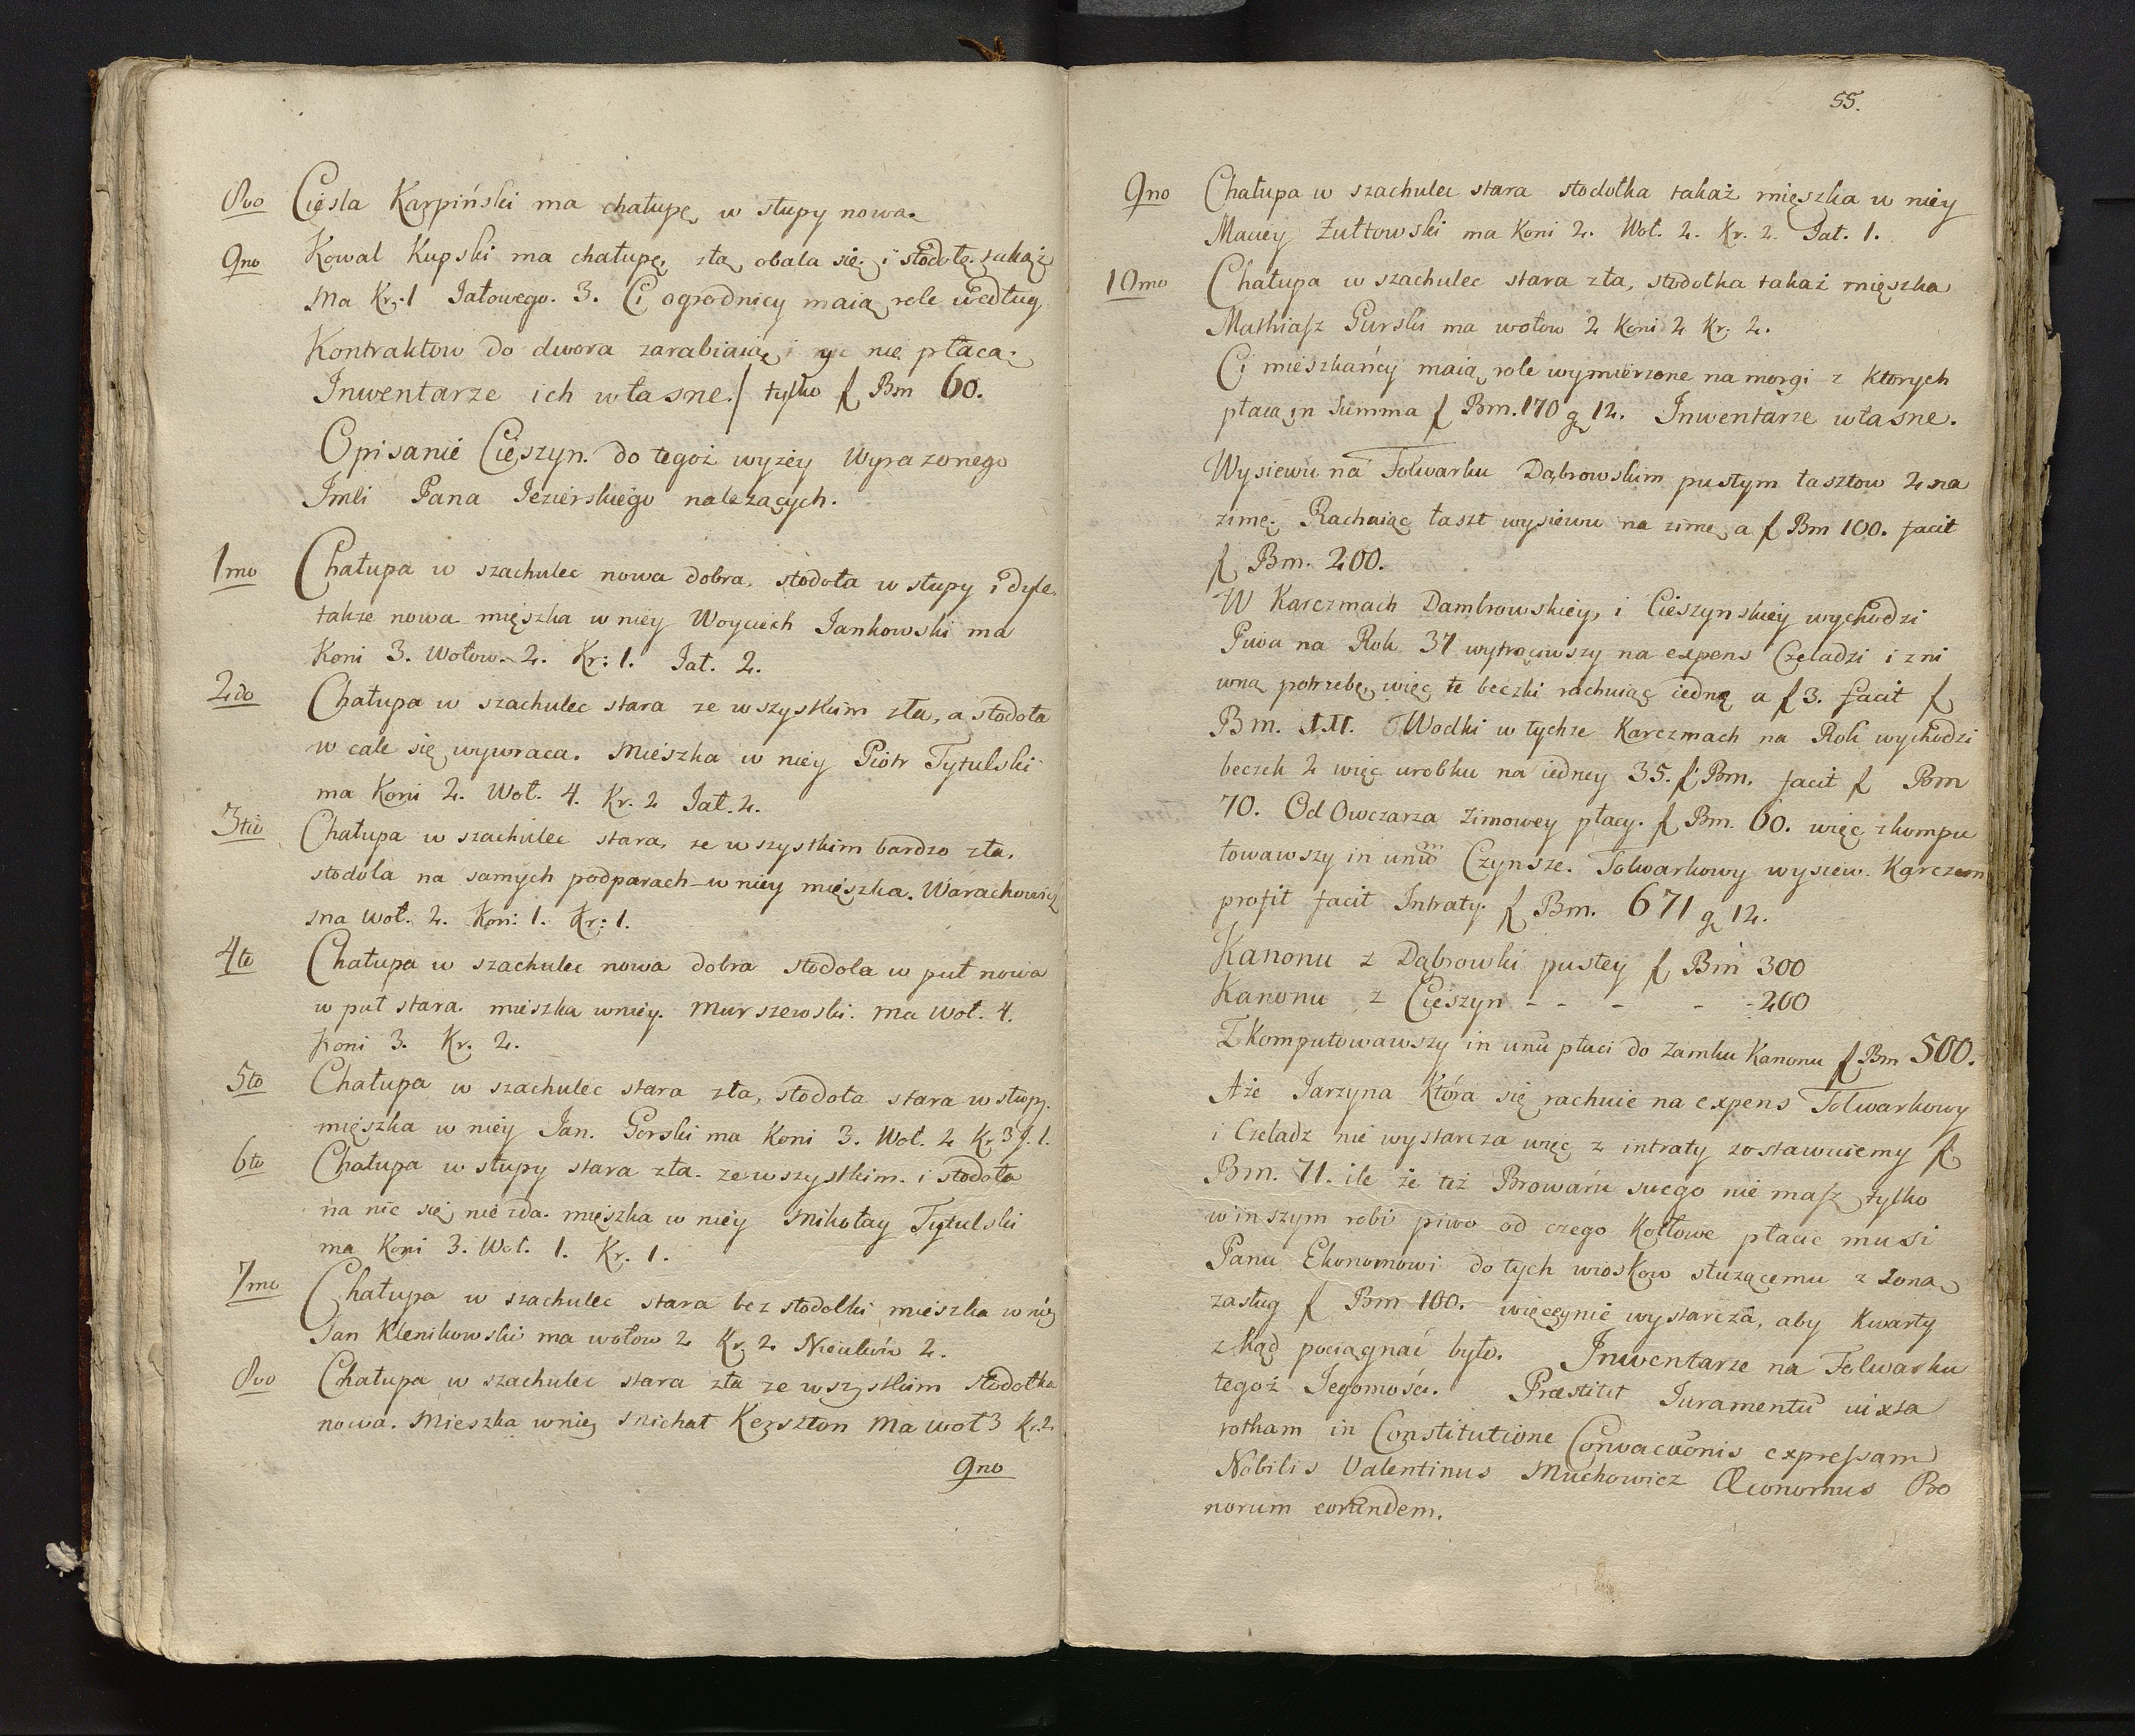 8vo Cięsla Karpiński ma chałupę w słupy nowa.
9no Kowal Kupski ma chałupę złą obala się i stodołę takąż
Ma Kr: 1 Jałowego. 3. Ci ogrodnicy maią role według
Kontraktow do dwora zarabiaią i nic nie płacą.
Inwentarze ich własne. tylko f Bm 60.
Opisanie Cieszyn. do tegoż wyżey Wyrazonego
Jmći Pana Jezierskiego nalezących.
1mo Chałupa w szachulec nowa dobra. stodoła w słupy i dyle.
takze nowa mięszka w niey Woyciech Jankowski ma
Koni 3. Wołow. 2. Kr: 1. Jał. 2.
2do Chałupa w szachulec stara ze wszystkim zła, a stodoła
w cale się wywraca. Mieszka w niey Piotr Tytulski
ma Koni 2. Woł. 4. Kr. 2 Jał. 2.
3tio Chałupa w szachulec stara, ze wszystkim bardzo zła.
stodoła na samych podparach w niey mięszka. Warachowicz
ma woł. 2. Kon: 1. Kr: 1.
4to Chałupa w szachulec nowa dobra stodola w puł nowa
w puł stara mieszka wniey. Murszewski. ma Woł. 4.
koni 3. Kr. 2.
5to Chałupa w szachulec stara zła, stodoła stara w słupy.
mięszka w niey Jan. Gorski ma Koni 3. Woł. 2 Kr. 3 J. 1.
6to Chałupa w słupy stara zła. ze wszystkim. i stodoła
na nic się nie zda. mięszka w niey Mikołay Tytulski
ma Koni 3. Woł. 1. Kr. 1.
7mo Chałupa w szachulec stara bez stodolki mieszka w niey
Jan Klenikowski ma wołow 2 Kr. 2 Nieukow 2.
8vo Chałupa w szachulec stara zła ze wszystkim stodołka
nowa. Mieszka wniey Michał Kerszton Ma woł 3 Kr. 2.
9no
55.
9no Chałupa w szachulec stara stodolka takaż mięszka w niey
Maciey Zułtowski ma Koni 2. Woł. 2. Kr. 2. Jał. 1.
10mo Chałupa w szachulec stara zła, stodolka takaż mięszka
Mathiasz Gurski ma wołow 2 Koni 2 Kr. 2.
Ci mieszkańcy maią role wymierzone na morgi z ktorych
płacą in Summa f Bm. 170 g 12. Inwentarze własne.
Wysiewu na Folwarku Dąbrowskim pustym łasztow 2 na
zimę. Rachuiąc łaszt wysiewu na zimę a f Bm 100. facit
f Bm. 200.
W Karczmach Dambrowskiey, i Cieszynskiey wychodzi
Piwa na Rok 37 wytrąciwszy na expens Czeladzi i zni
wną potrzebę, więc te beczki rachuiąc iedną a f 3. facit f
Bm. 111. Wodki w tychze Karczmach na Rok wychodzi
beczek 2 więc urobku na iedney 35. f Bm. facit f Bm
70. Od Owczarza Zimowey płacy. f Bm. 60. więc zkompu
towawszy in unum Czynsze. Folwarkowy wysiew. Karczem
profit facit Intraty. f Bm. 671 g 12.
Kanonu z Dąbrowki pustey f Bm 300
Kanonu z Cięszyn - - - - 200
Zkomputowawszy in unu płaci do Zamku Kanonu f Bm 500.
Aże Jarzyna Ktora się rachuie na expens Folwarkowy
i Czeladz nie wystarcza więc z intraty zostawuiemy f
Bm. 71. ile że też Browaru swego nie masz tylko
w inszym robi piwo od czego Kotłowe płacic musi
Panu Ekonomowi do tych wioskow służącemu z Zoną
zasług f Bm 100. więcey nie wystarcza, aby Kwarty
zkąd pociągnać było. Inwentarze na Folwarku
tegoż Jegomości. Præstitit Juramentu iuxta
rotham in Constitutione Convacaõnis expressam
Nobilis Valentinus Muchowicz Œconomus Bo
norum eorundem.